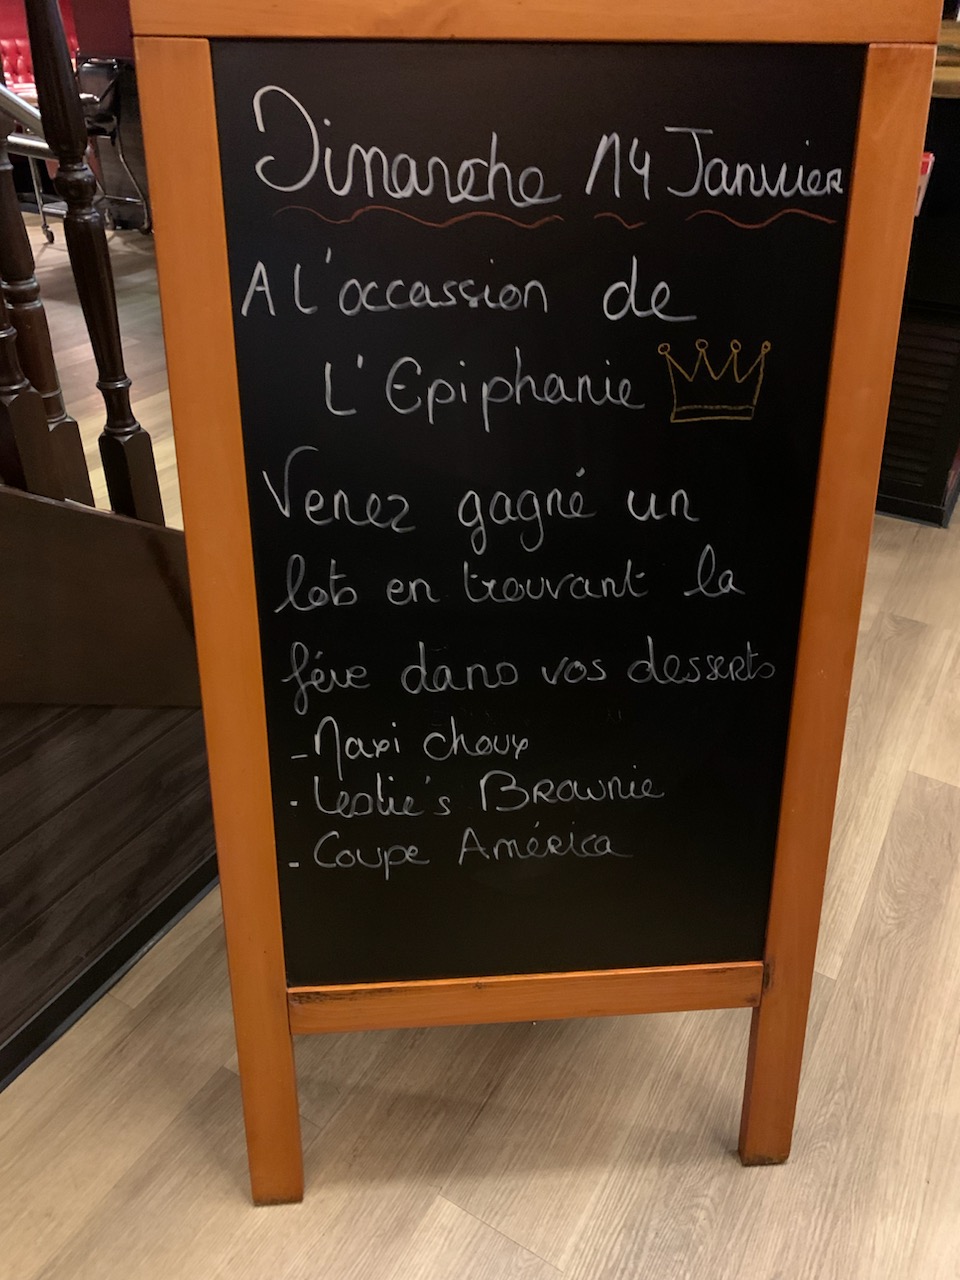 Dimanche 14 Janvier
A l'occassion de
L'Epiphanie
Venez gagné un
lot en trouvant la
féve dans vos desserts
- Maxi choux
- Leslie's Brownie
- Coupe América